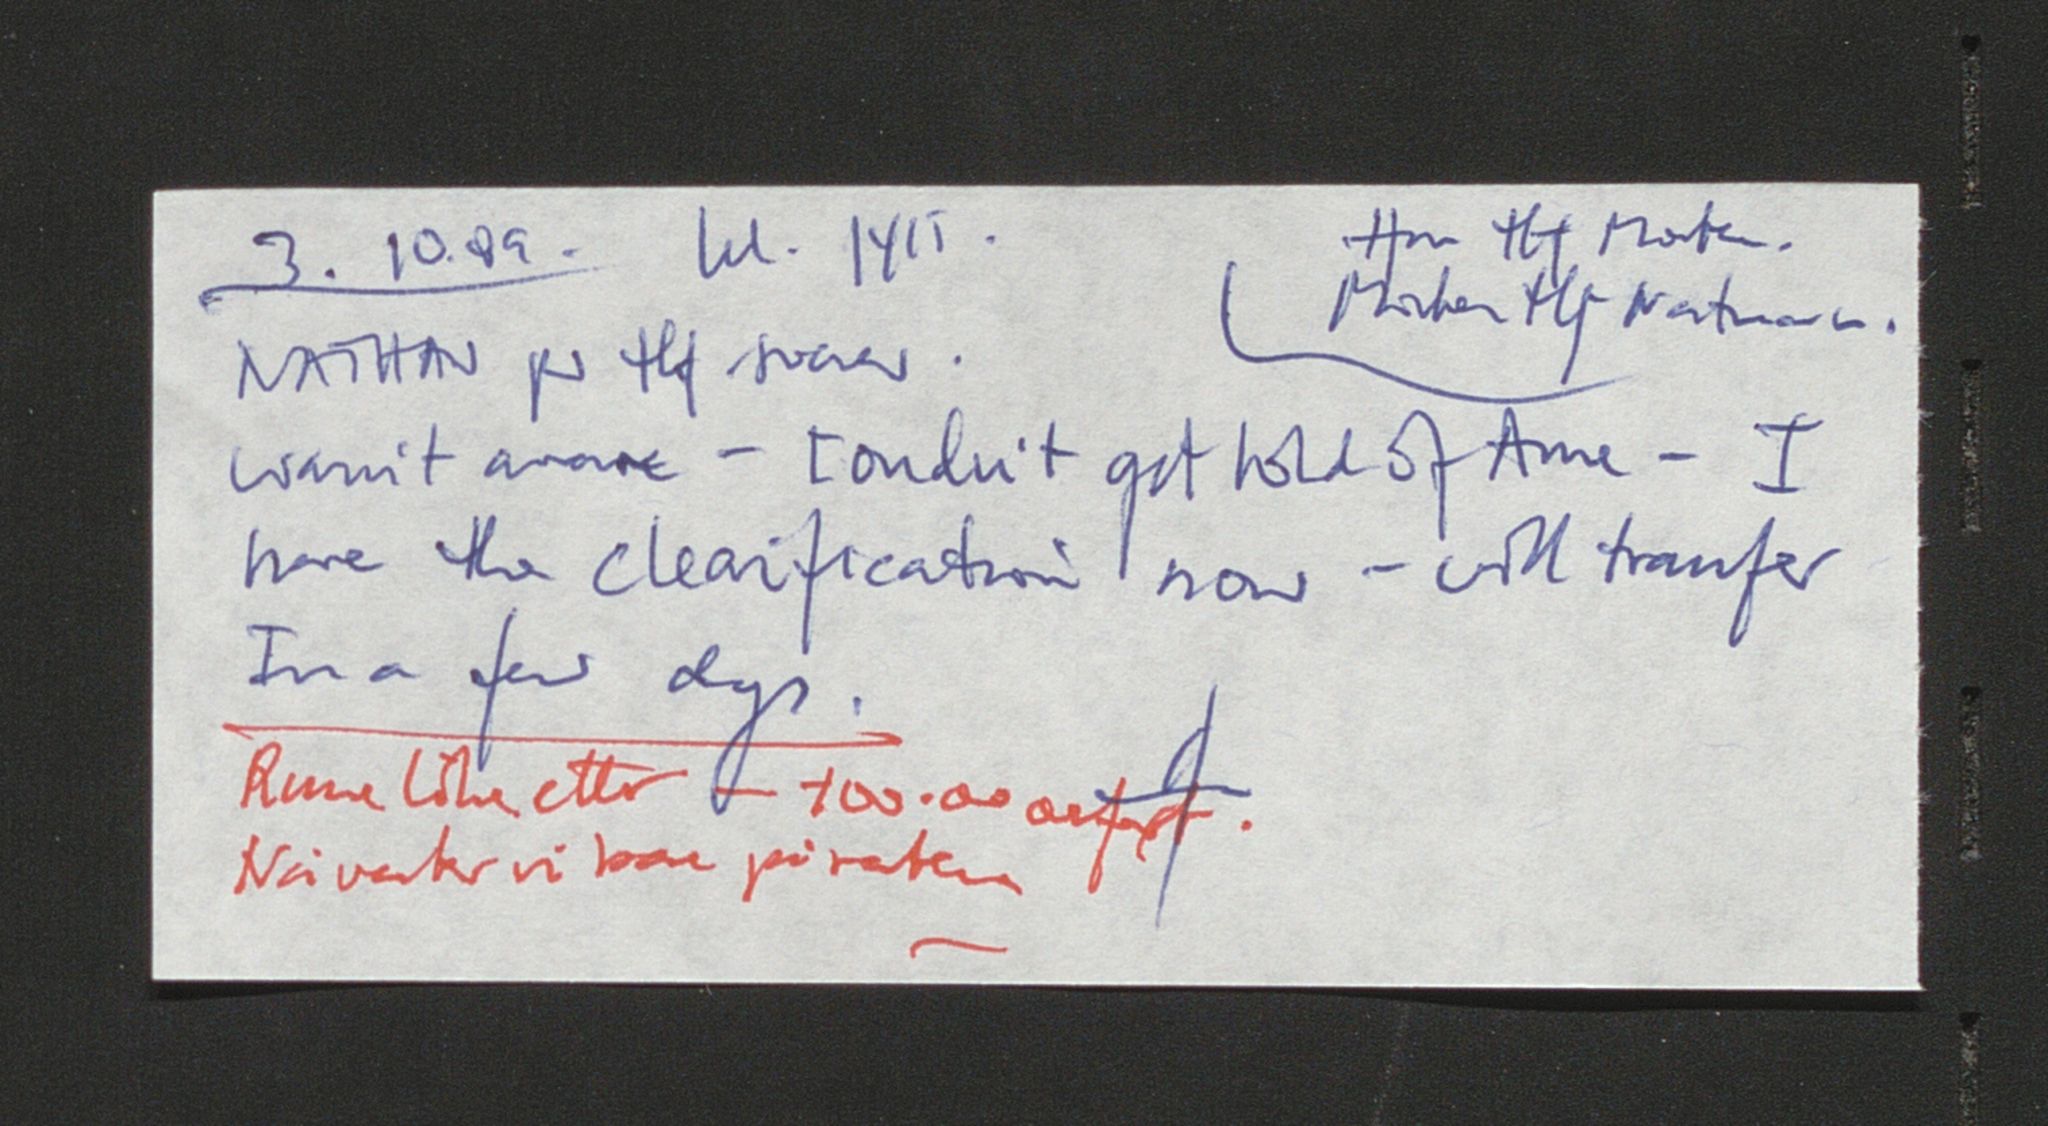 3. 10.89. kl. 1415.
Hm tlf Morten.
Morten tlf Natmann.
NATHAN pr tlf svarer.
wasn't aware - couldn't get hold of Arne - I
have the clearification now - will transfer
In a few days.
Rune like etter - 100.00 oppført.
Nå venter vi bare på raten